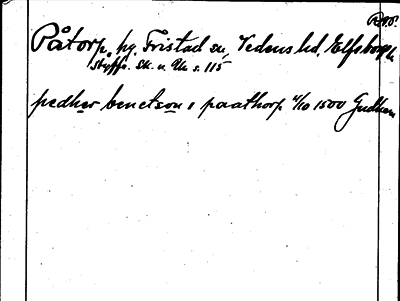 R.A.P.
Påtorp, hg. Fristad sn, Vedens hd, Elfsborgs l.
Styffe. Sk. u. Un s. 115
pedher benetson i paathorp 4/10 1500 Gudhem